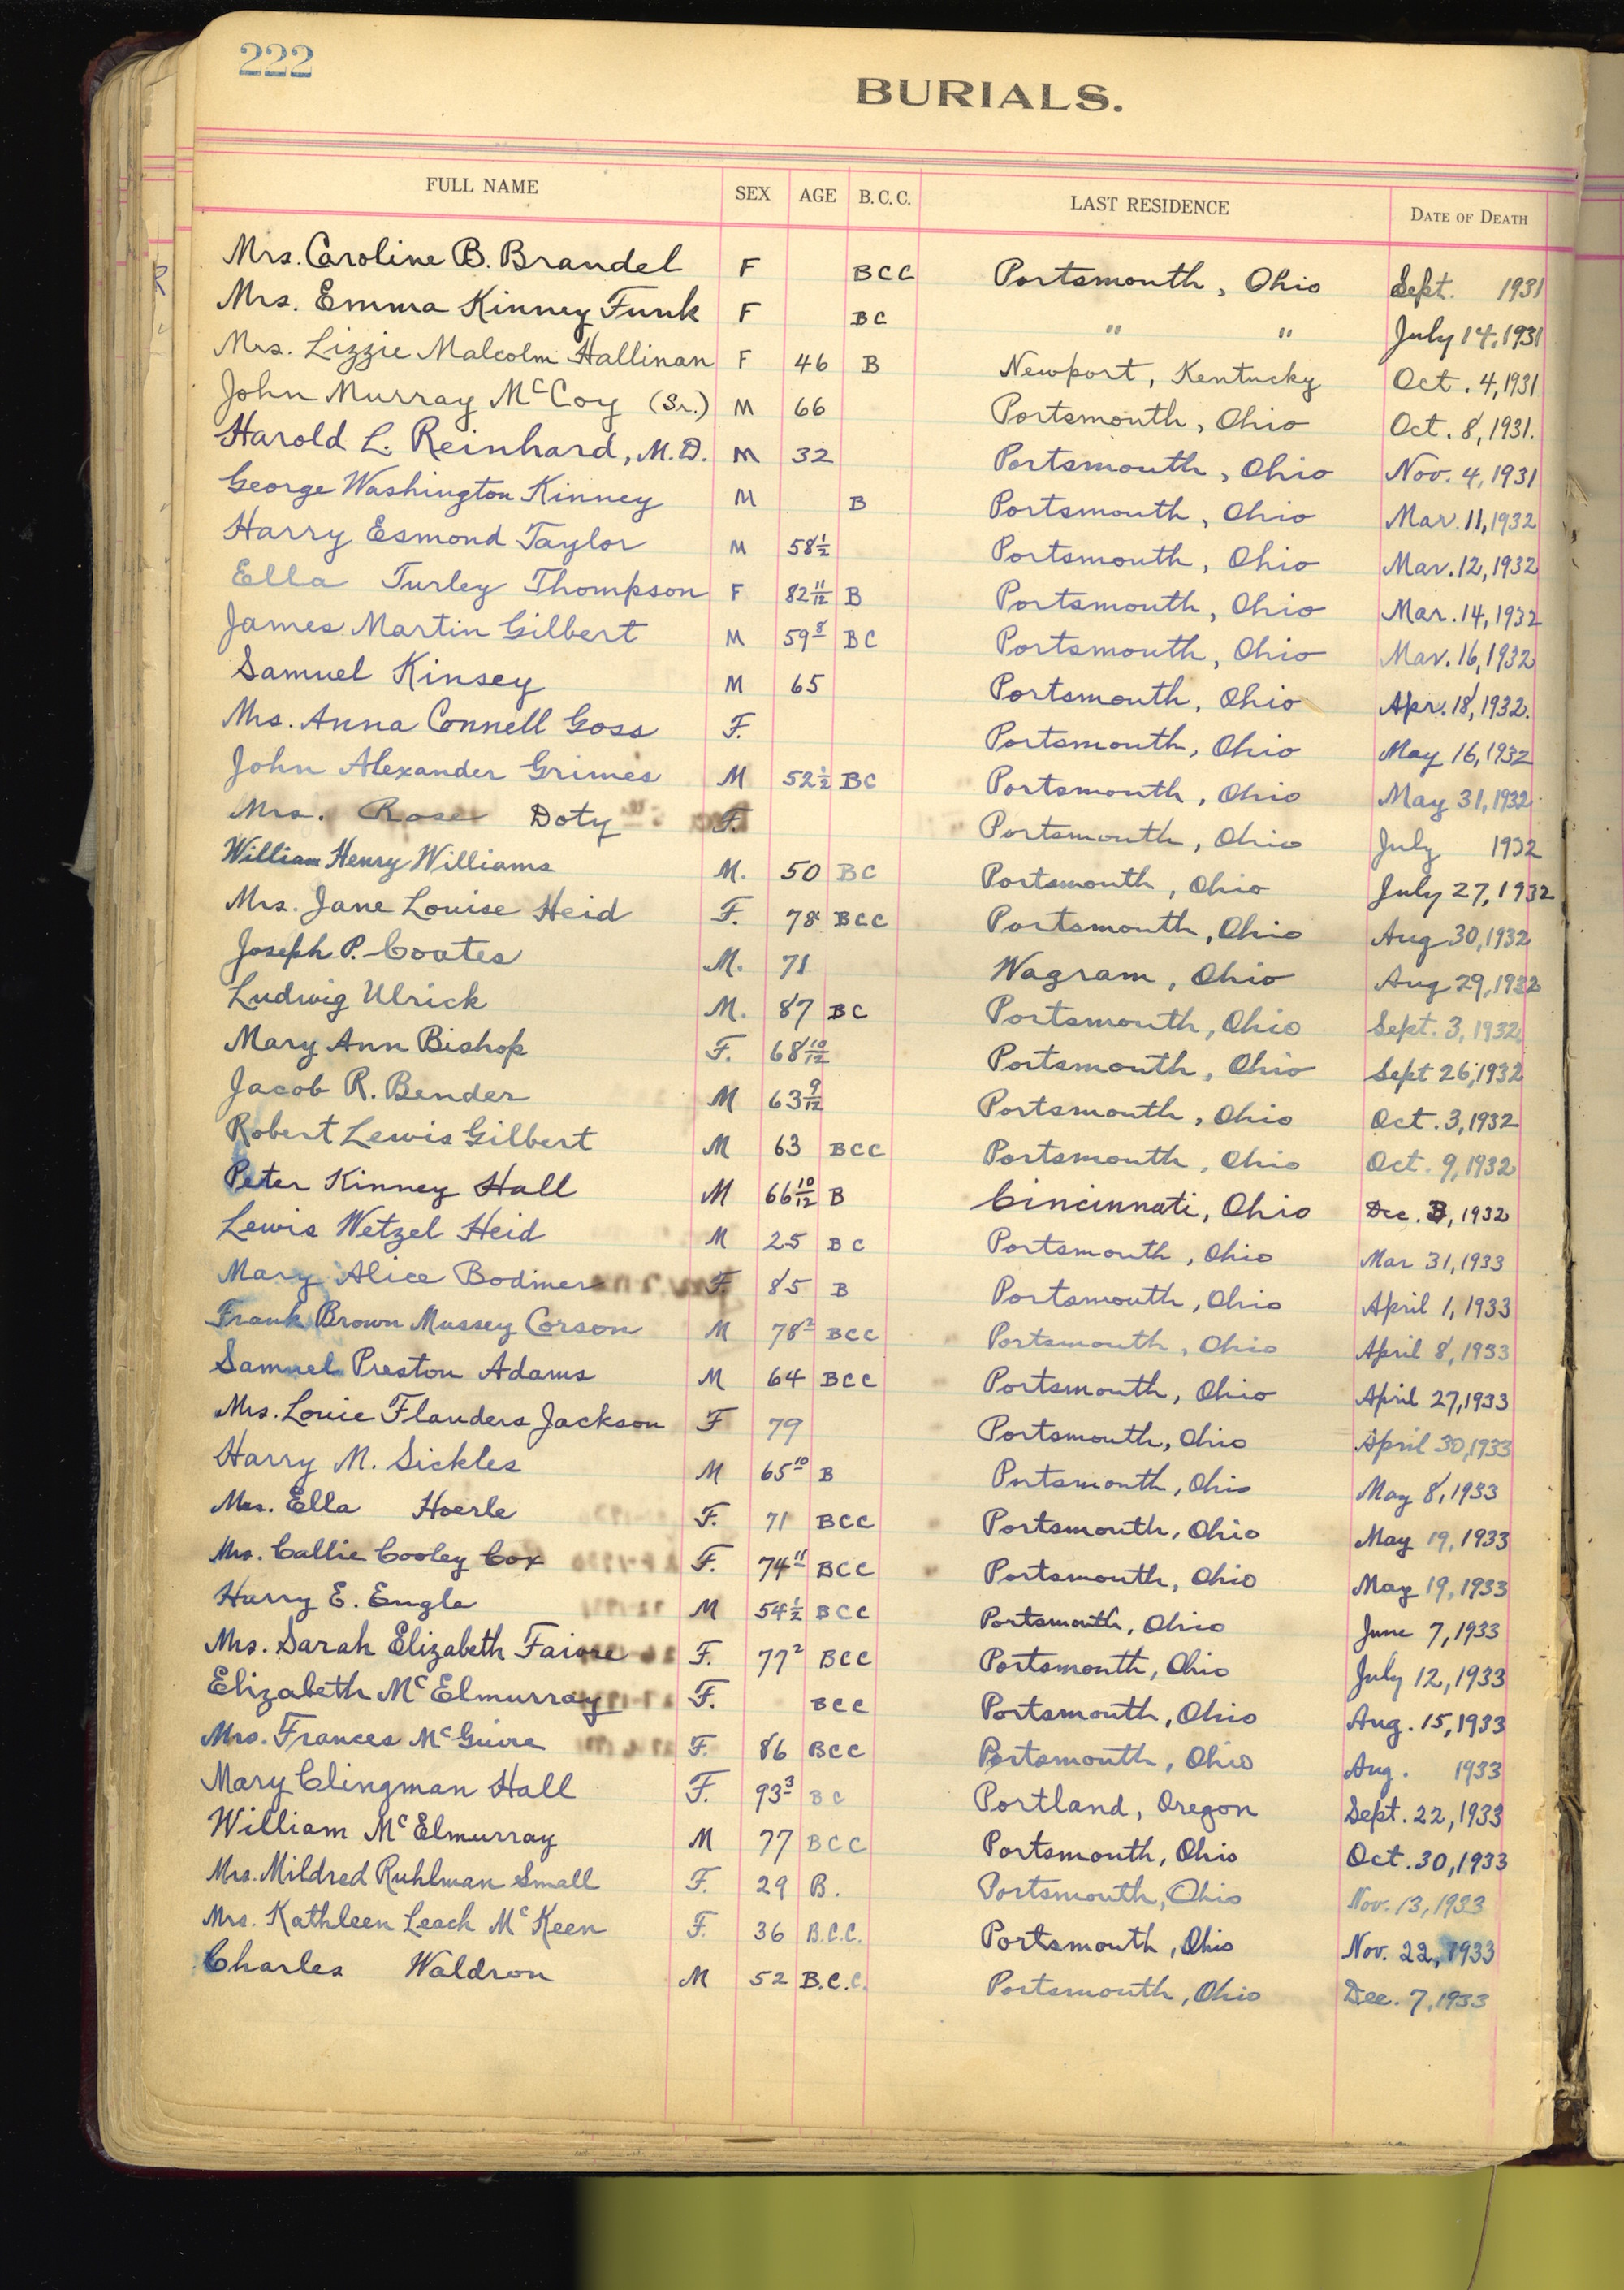 222
BURIALS.
FULL NAME SEX AGE B.C.C. LAST RESIDENCE DATE OF DEATH
Mrs. Caroline B. Brandel F BCC Portsmouth, Ohio Sept. 1931
Mrs. Emma Kinney Funk F BC " " July 14, 1931
Mrs. Lizzie Malcolm Hallinan F 46 B Newport, Kentucky Oct. 4, 1931
John Murray McCoy (Sr.) M 66 Portsmouth, Ohio Oct. 8, 1931.
Harold L. Reinhard, M.D. M 32 Portsmouth, Ohio Nov. 4, 1931
George Washington Kinney M B Portsmouth, Ohio Mar. 11, 1932
Harry Esmond Taylor M 58 1/2 Portsmouth, Ohio Mar. 12, 1932
Ella Turley Thompson F 82 11/12 B Portsmouth, Ohio Mar. 14, 1932
James Martin Gilbert M 59 8 BC Portsmouth, Ohio Mar. 16, 1932
Samuel Kinsey M 65 Portsmouth, Ohio Apr. 18, 1932.
Mrs. Anna Connell Goss F. Portsmouth, Ohio May 16, 1932
John Alexander Grimes M 52 1/2 BC Portsmouth, Ohio May 31, 1932
Mrs. Rose Doty F. Portsmouth, Ohio July 1932
William Henry Williams M. 50 BC Portsmouth, Ohio July 27, 1932
Mrs. Jane Louise Heid F. 78 BCC Portsmouth, Ohio Aug 30, 1932
Joseph P. Coates M. 71 Wagram, Ohio Aug 29, 1932
Ludwig Ulrick M. 87 BC Portsmouth, Ohio Sept. 3, 1932
Mary Ann Bishop F. 68 10/12 Portsmouth, Ohio Sept 26, 1932
Jacob R. Bender M 63 9/12 Portsmouth, Ohio Oct. 3, 1932
Robert Lewis Gilbert M 63 BCC Portsmouth, Ohio Oct. 9, 1932
Peter Kinney Hall M 66 10/12 B Cincinnati, Ohio Dec. 3, 1932
Lewis Wetzel Heid M 25 BC Portsmouth, Ohio Mar 31, 1933
Mary Alice Bodmer F. 85 B Portsmouth, Ohio April 1, 1933
Frank Brown Mussey Corson M 78 2 BCC Portsmouth, Ohio April 8, 1933
Samuel Preston Adams M 64 BCC Portsmouth, Ohio April 27, 1933
Mrs. Louie Flanders Jackson F 79 Portsmouth, Ohio April 30, 1933
Harry M. Sickles M 65 10 B Portsmouth, Ohio May 8, 1933
Mrs. Ella Hoerle F. 71 BCC Portsmouth, Ohio May 19, 1933
Mrs. Callie Cooley Cox F. 74 11 BCC Portsmouth, Ohio May 19, 1933
Harry E. Engle M 54 1/2 BCC Portsmouth, Ohio June 7, 1933
Mrs. Sarah Elizabeth F. 77 2 BCC Portsmouth, Ohio July 12, 1933
Elizabeth McElmurray F. BCC Portsmouth, Ohio Aug. 15, 1933
Mrs. Frances McGuire F. 86 BCC Portsmouth, Ohio Aug. 1933
Mary Clingman Hall F. 93 3 BC Portland, Oregon Sept. 22, 1933
William McElmurray M 77 BCC Portsmouth, Ohio Oct. 30, 1933
Mrs. Mildred Ruhlman Small F. 29 B. Portsmouth, Ohio Nov. 13, 1933
Mrs. Kathleen Leach McKeen F. 36 B.C.C. Portsmouth, Ohio Nov. 22, 1933
Charles Waldron M 52 B.C.C. Portsmouth, Ohio Dec. 7, 1933